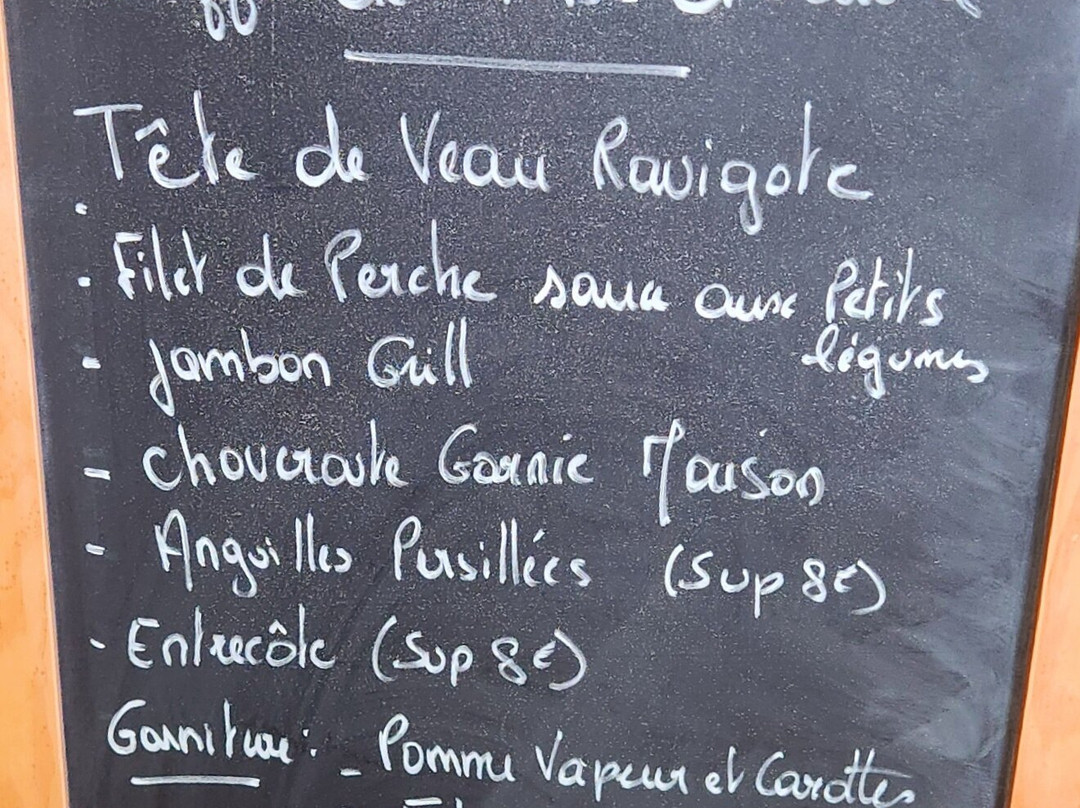 Tête de Veau Ravigote
- Filet de Perche sauce aux Petits
légumes
- Jambon Grill
- choucroute Garnie Maison
- Anguilles Persillées (Sup 8€)
- Entrecôte (Sup 8€)
Garniture: - Pomme Vapeur et Carottes